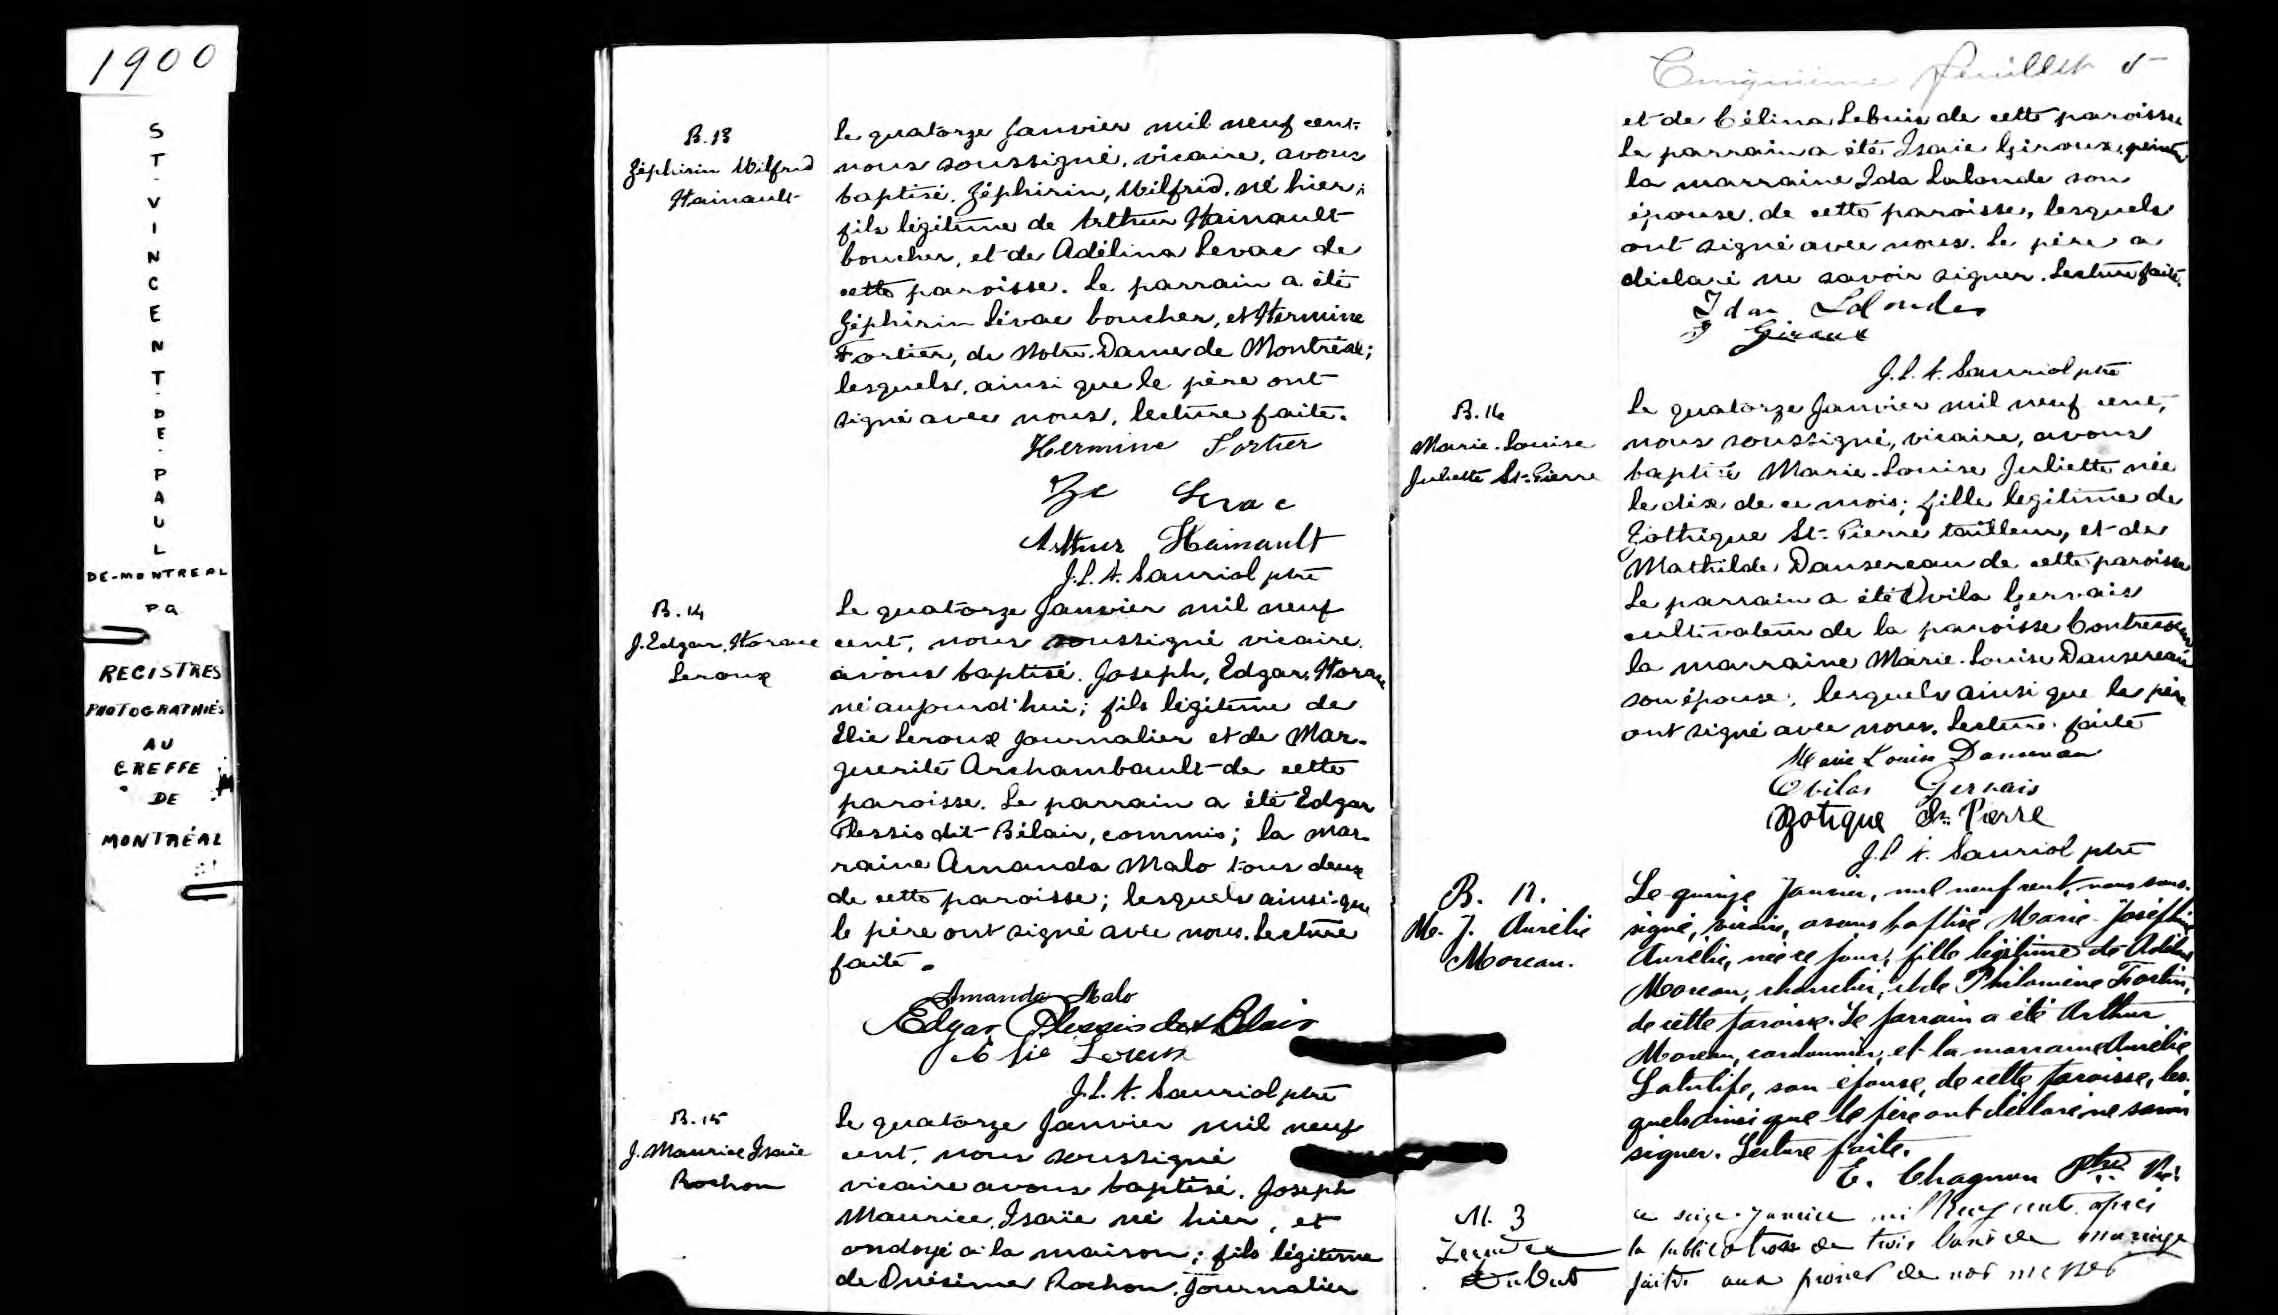 1900
ST-VINCENT-DE-PAUL
DE-MONTREAL
PQ
REGISTRES
PHOTOGRAPHIÉS
AU
GREFFE
DE
MONTRÉAL
B.13
Zéphirin Wilfrid
Hainault
Le quatorze Janvier mil neuf cent,
nous soussigné, vicaire, avons
baptisé, Zéphirin, Wilfrid, né hier;
fils légitime de Arthur Hainault
boucher, et de Adélina Levac de
cette paroisse. Le parrain a été
Zéphirin Lévac boucher, et Hermine
Fortier, de Notre-Dame de Montréal;
lesquels, ainsi que le père ont
signé avec nous, lecture faite.
Hermine Fortier
Ze Levac
Arthur Hainault
J.L.A. Sauriol ptre
B.14
J. Edgar, Horace
Leroux
Le quatorze Janvier mil neuf
cent, nous soussigné vicaire
avons baptisé, Joseph, Edgar, Horace
né aujourd'hui; fils légitime de
Elie Leroux journalier et de Mar-
guerite Archambault de cette
paroisse. Le parrain a été Edgar
Plessis dit Bélair, commis; la mar-
raine Amanda Malo tous deux
de cette paroisse; lesquels ainsi que
le père ont signé avec nous. Lecture
faite.
Amanda Malo
Edgar Plessis dit Belair
Elie Leroux
J.L.A. Sauriol ptre
B.15
J. Maurice Isaïe
Rochon
Le quatorze Janvier mil neuf
cent, nous soussigné
vicaire avons baptisé, Joseph
Maurice, Isaïe né hier, et
ondoyé à la maison; fils légitime
de Onésime Rochon, journalier
Cinquième feuillet 5
et de Célina Lebuis de cette paroisse
le parrain a été Isaie Giroux, peintre
la marraine Ida Lalonde son
épouse, de cette paroisse, lesquels
ont signé avec nous. Le père a
déclaré ne savoir signer. Lecture faite.
Ida Lalonde
I Giroux
J.L.A. Sauriol ptre
B.16
Marie-Louise
Juliette St-Pierre
Le quatorze Janvier mil neuf cent,
nous soussigné, vicaire, avons
baptisé Marie-Louise Juliette née
le dix de ce mois; fille légitime de
Zothique St-Pierre tailleur, et de
Mathilde Dansereau de cette paroisse
Le parrain a été Ovila Gervais
cultivateur de la paroisse Contrecoeur
la marraine Marie-Louise Dansereau
son épouse, lesquels ainsi que le père
ont signé avec nous. Lecture faite
Marie Louise Dansereau
Ovila Gervais
Zotique St-Pierre
J.L.A. Sauriol ptre
B. 17.
M. J. Aurélie
Moreau.
Le quinze Janvier, mil neuf cent, nous sous-
signé, vicaire, avons baptisé Marie-Joséphine
Aurélie, née ce jour, fille légitime de
Moreau, et de Philomène Fortin,
de cette paroisse. Le parrain a été Arthur
Moreau, cordonnier, et la marraine Aurélie
Latulipe, son épouse, de cette paroisse, les-
quels ainsi que le père ont déclaré ne savoir
signer. Lecture faite.
E. Chagnon Ptre Vic.
M. 3
Ce seize Janvier mil neuf cent après
la publication de trois bans de mariage
faite aux prones de nos messes